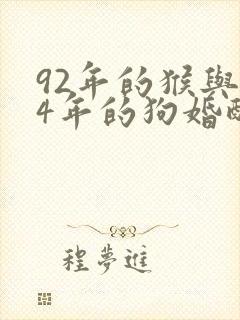 92年的猴與
4年的狗婚
程夢進